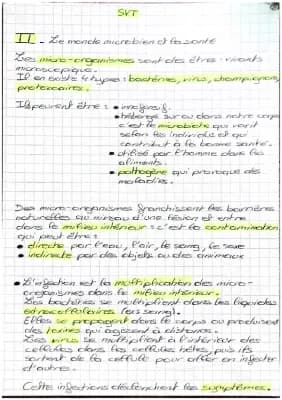 SVT
II - Le monde microbien et la santé
Les micro-organismes sont des êtres vivants
microscopique.
Il en existe 4 types : bactéries, virus, champignons,
protozoaires.
Ils peuvent être : • inoffensif.
• hébergé sur ou dans notre corps
c'est le microbiote qui varit
selon les individus et qui
contribut à la bonne santé.
• utilisé par l'homme dans les
aliments.
• pathogène qui provoque des
maladies.
Des micro-organismes franchissent les barrières
naturelles au niveau d'une lésion et entre
dans le milieu intérieur : c'est la contamination
qui peut être :
• directe par l'eau, l'air, le sang, le sexe
• indirecte par des objets ou des animaux
• L'infection est la multiplication des micro-
organismes dans le milieu intérieur.
Les bactéries se multiplient dans les liquides
extracellulaires (ex: sang).
Elles se propagent dans le corps ou produisent
des toxines qui agissent à distance.
Les virus se multiplient à l'intérieur des
cellules dans les cellules hôtes, puis ils
sortent de la cellule pour aller en infecter
d'autres.
Cette infections déclenchent les symptômes.